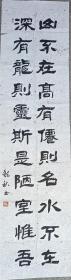 山不在高有僊則名水不在
深有龍則靈斯是陋室惟吾